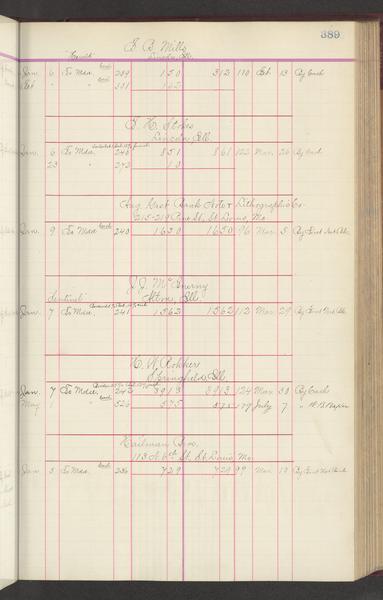 389
S. B. Mills
"Herald" Lincoln, Ill.
Jan. 6 To Mdse. Cash 239 150 312 110 Feb. 13 By Cash
Feb " Cash 331 162
S. H. Stokes
Lincoln, Ill.
Jan. 6 To Mdse. 240 851 861 122 Mar. 26 By Cash
23 " 272 10
Aug. Gast Bank Note & Lithographic Co.
215-219 Pine St. St. Louis, Mo.
Jan. 9 To Mdse. Cash 240 1650 1650 96 Mar. 5 By First Nat. Bk.
J. J. McInerny
Sentinel Alton, Ill.
Jan. 7 To Mdse. 241 1562 1562 112 Mar. 29 By First Nat. Bk.
H. W. Rokker
Springfield, Ill.
Jan. 7 To Mdse. 242 3913 3913 124 Mar. 30 By Cash
May " Cash 526 575 575 179 July 7
Hailman Bros.
113 N. 6th St. St. Louis, Mo.
Jan. 5 To Mdse. Cash 236 729 729 99 Mar. 19 By First Nat. Bank